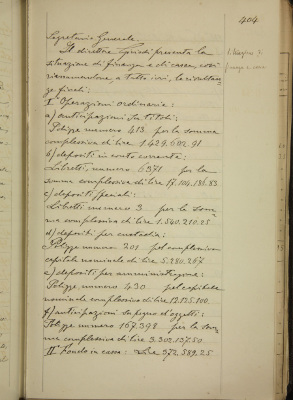 404
Segretario Generale.
Il direttore Grindi presenta la
situazione di finanza e di cassa, così
riassumendone, a tutto ieri, le risultan-
ze finali:
I° Operazioni ordinarie:
a) anticipazioni su titoli:
Polizze numero 413 per la somma
complessiva di lire 1.429.602.91
b) depositi in conto corrente:
Libretti, numero 6371 per la
somma complessiva di lire 17.104.186.83
c) depositi speciali:
Libretti numero 3 per la som-
ma complessiva di lire 1.540.210.25
d) depositi per custodia:
Polizze numero 201 pel complessivo
capitale nominale di lire 5.280.267
e) depositi per amministrazione:
Polizze numero 430 pel capitale
nominale complessivo di lire 12.125.100
f) anticipazioni su pegno d'oggetti:
Polizze numero 167.398 per la som-
ma complessiva di lire 3.302.137.50
II° Fondo in cassa: Lire 372.589.25
finanza e cassa